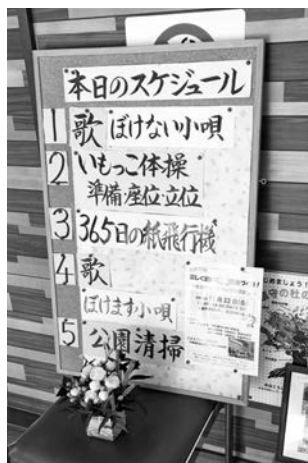 本日のスケジュール
1 歌 ぼけない小唄
2 いもっこ体操
準備・座位・立位
3 365日の紙飛行機
4 歌
ぼけます小唄
5 公園清掃